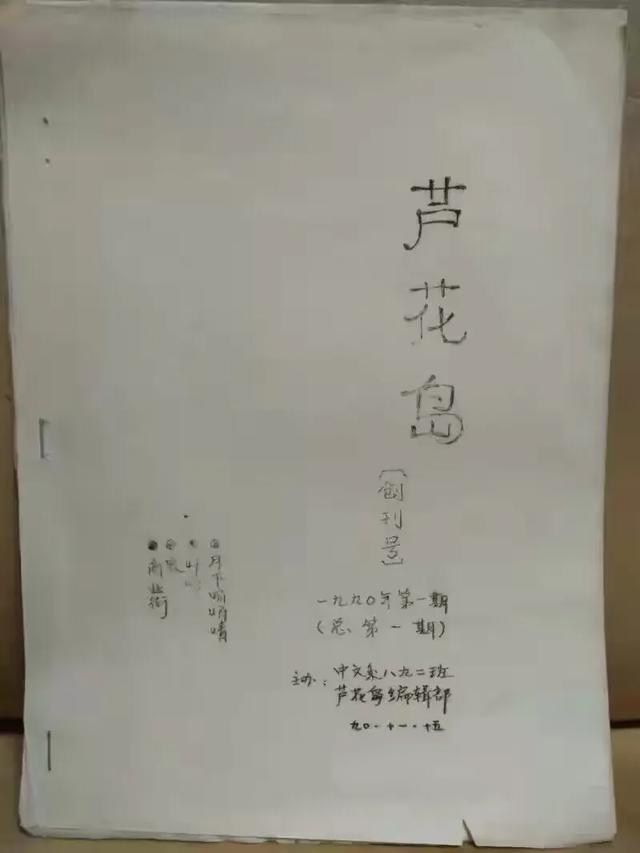 芦花岛
〔创刊号〕
一九九〇年第一期
（总、第一期）
主办：中文系八九二班
芦花岛编辑部
九〇·十一·十五
月下
商业街